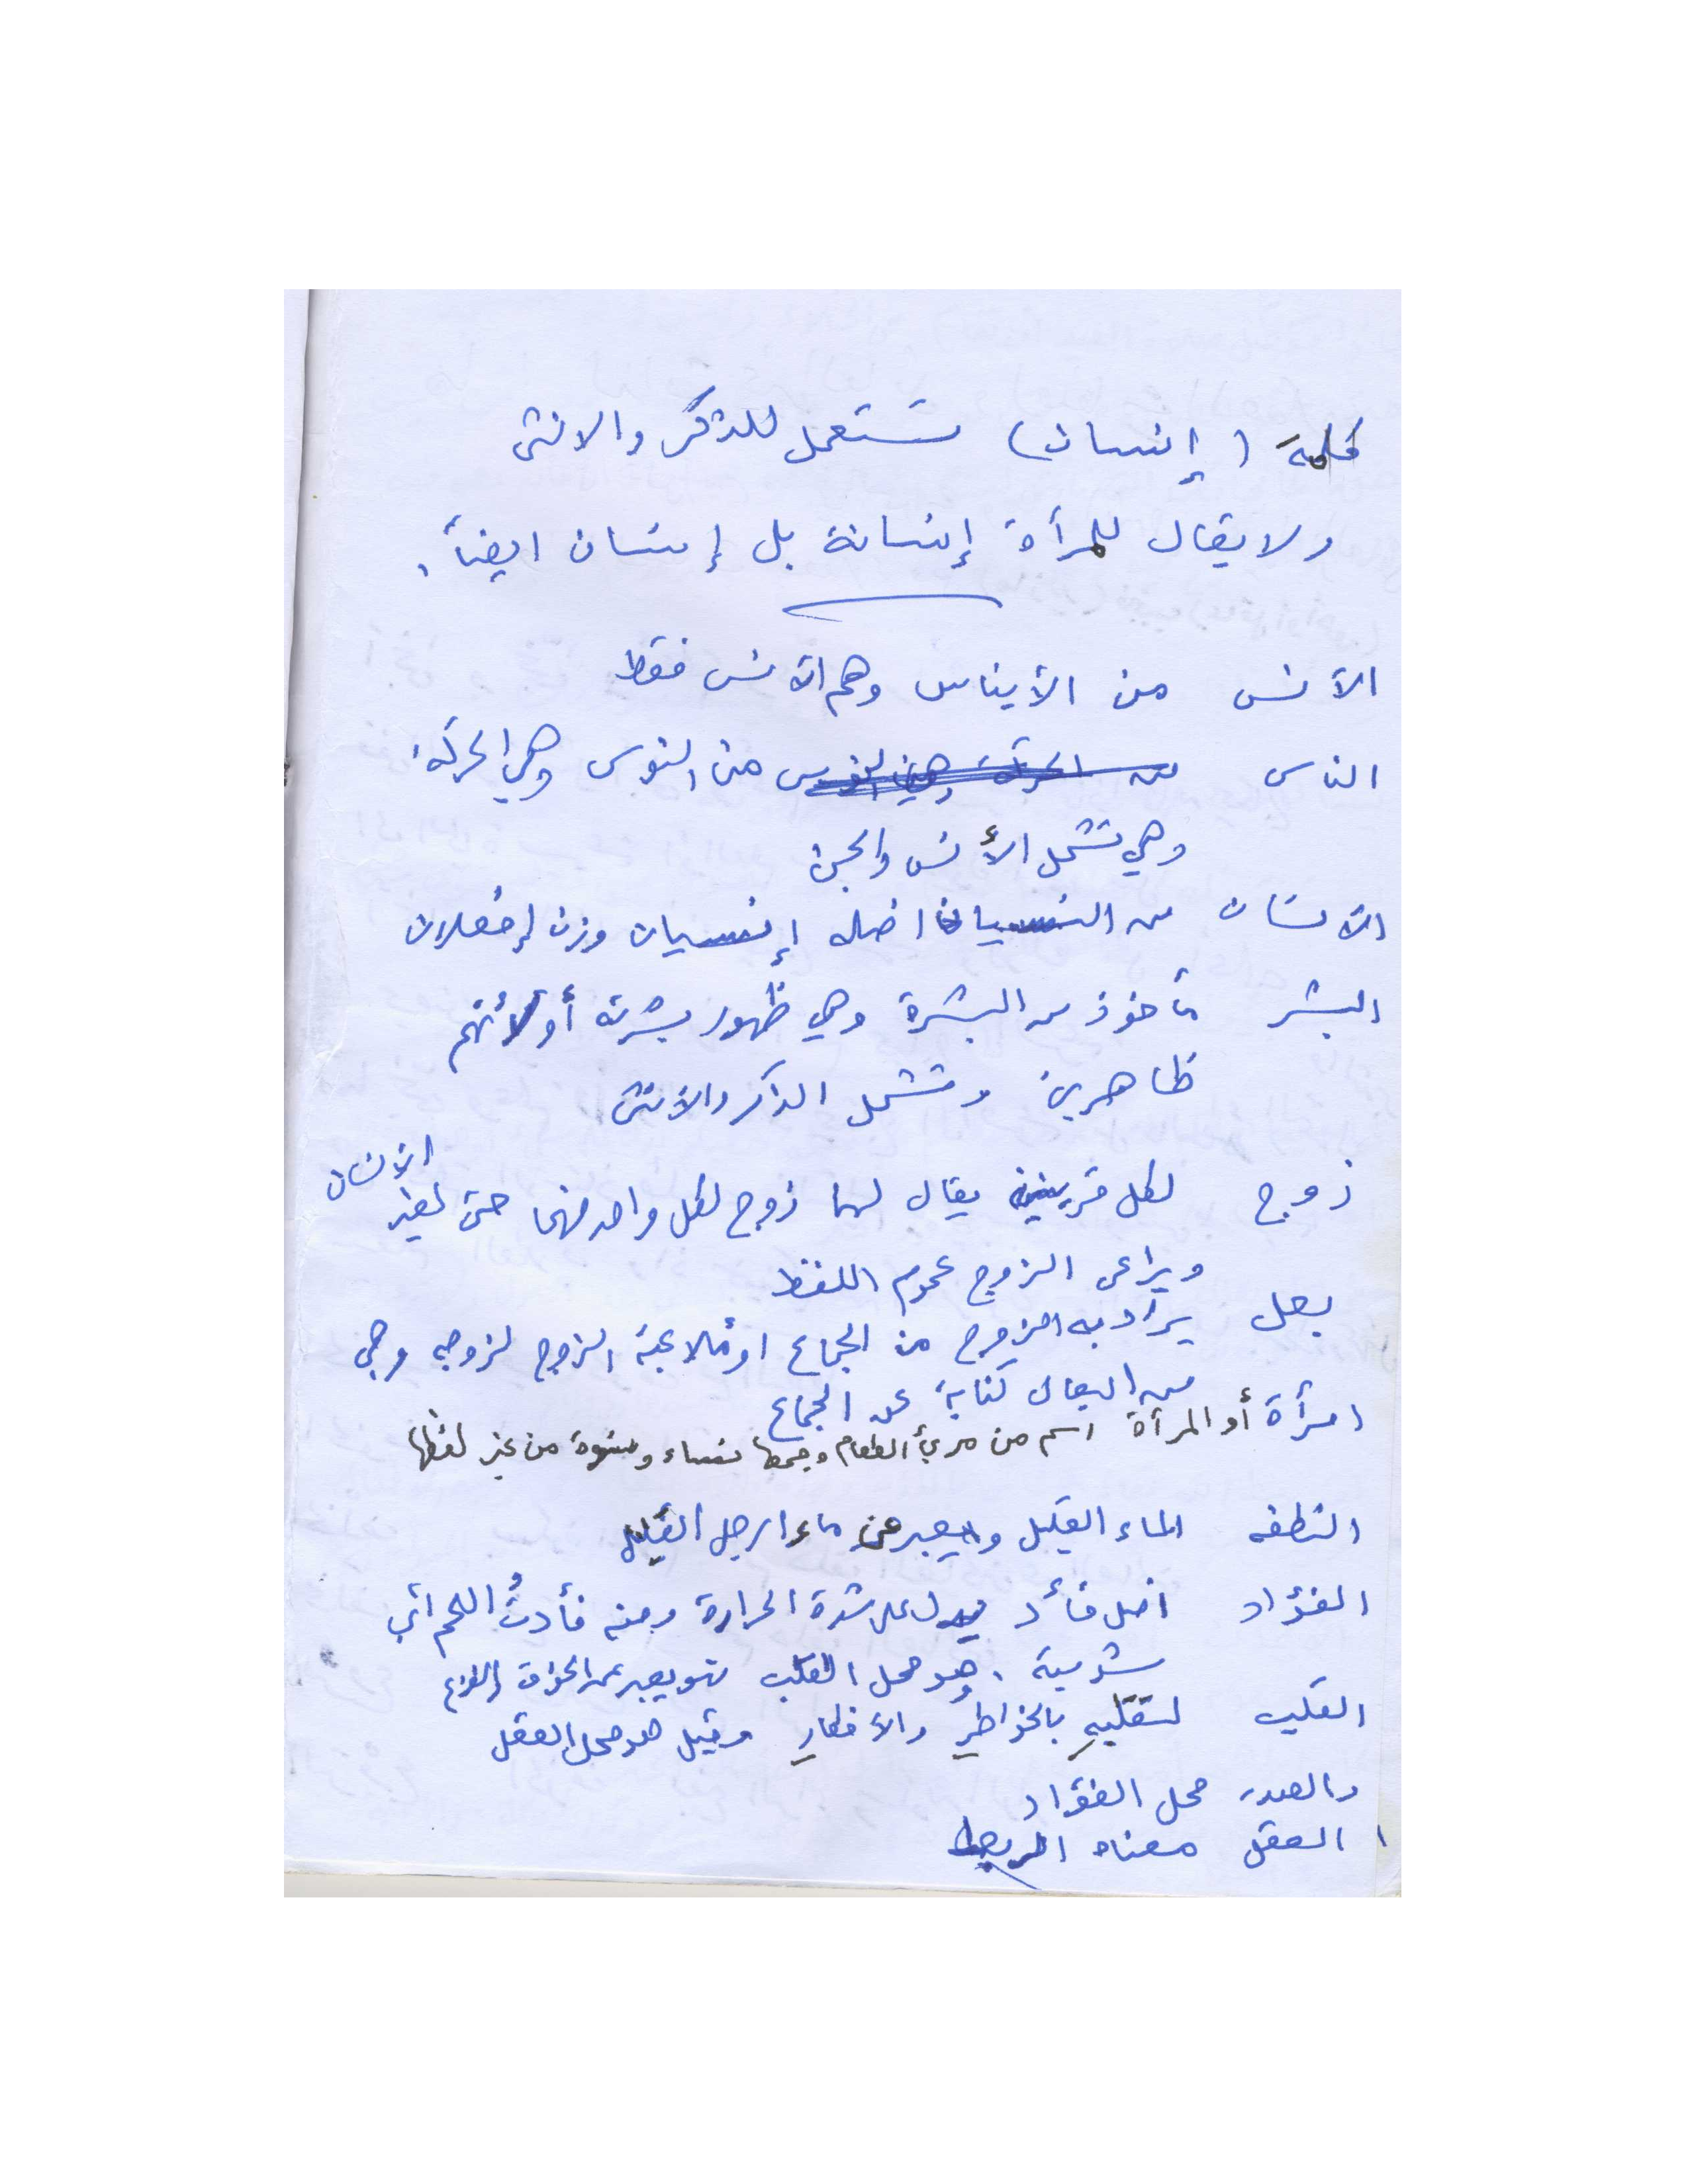 كلمة (إنسان) تستعمل للذكر والانثى
ولا يقال للمرأة إنسانة بل إنسان ايضاً.
الأنس من الأيناس وهم الأنس فقط
الناس من النوس وهي الحركة.
وهي تشمل الأنس والجن
الأنسان من النسيان اصله إنسيان وزن إفعلان
البشر مأخوذ من البشرة وهي ظهور بشرته أو لأنهم
ظاهرين وتشمل الذكر والأنثى
زوج لكل قرينين يقال لهما زوج لكل واحد منهما حتى لغير الأنسان
ويراعى الزوج عموم اللفظ
بعل يراد به الزوج من الجماع او ملاعبة الزوج لزوجه وهي
من البعال كناية عن الجماع
امرأة أو المرأة اسم من مريء الطعام وجمعها نساء ونسوة من غير لفظها
النطفه الماء القليل ويعبر عن ماء الرجل القليل
الفؤاد اصل فأد يدل على شدة الحرارة ومنه فأدتُ اللحم أي
شويته. وهو محل القلب ويعبر عن الخوف
القلب لتقلبهِ بالخواطرِ والأفكارِ وقيل هو محل العقل
والصدر محل الفؤاد
العقل معناه الربط